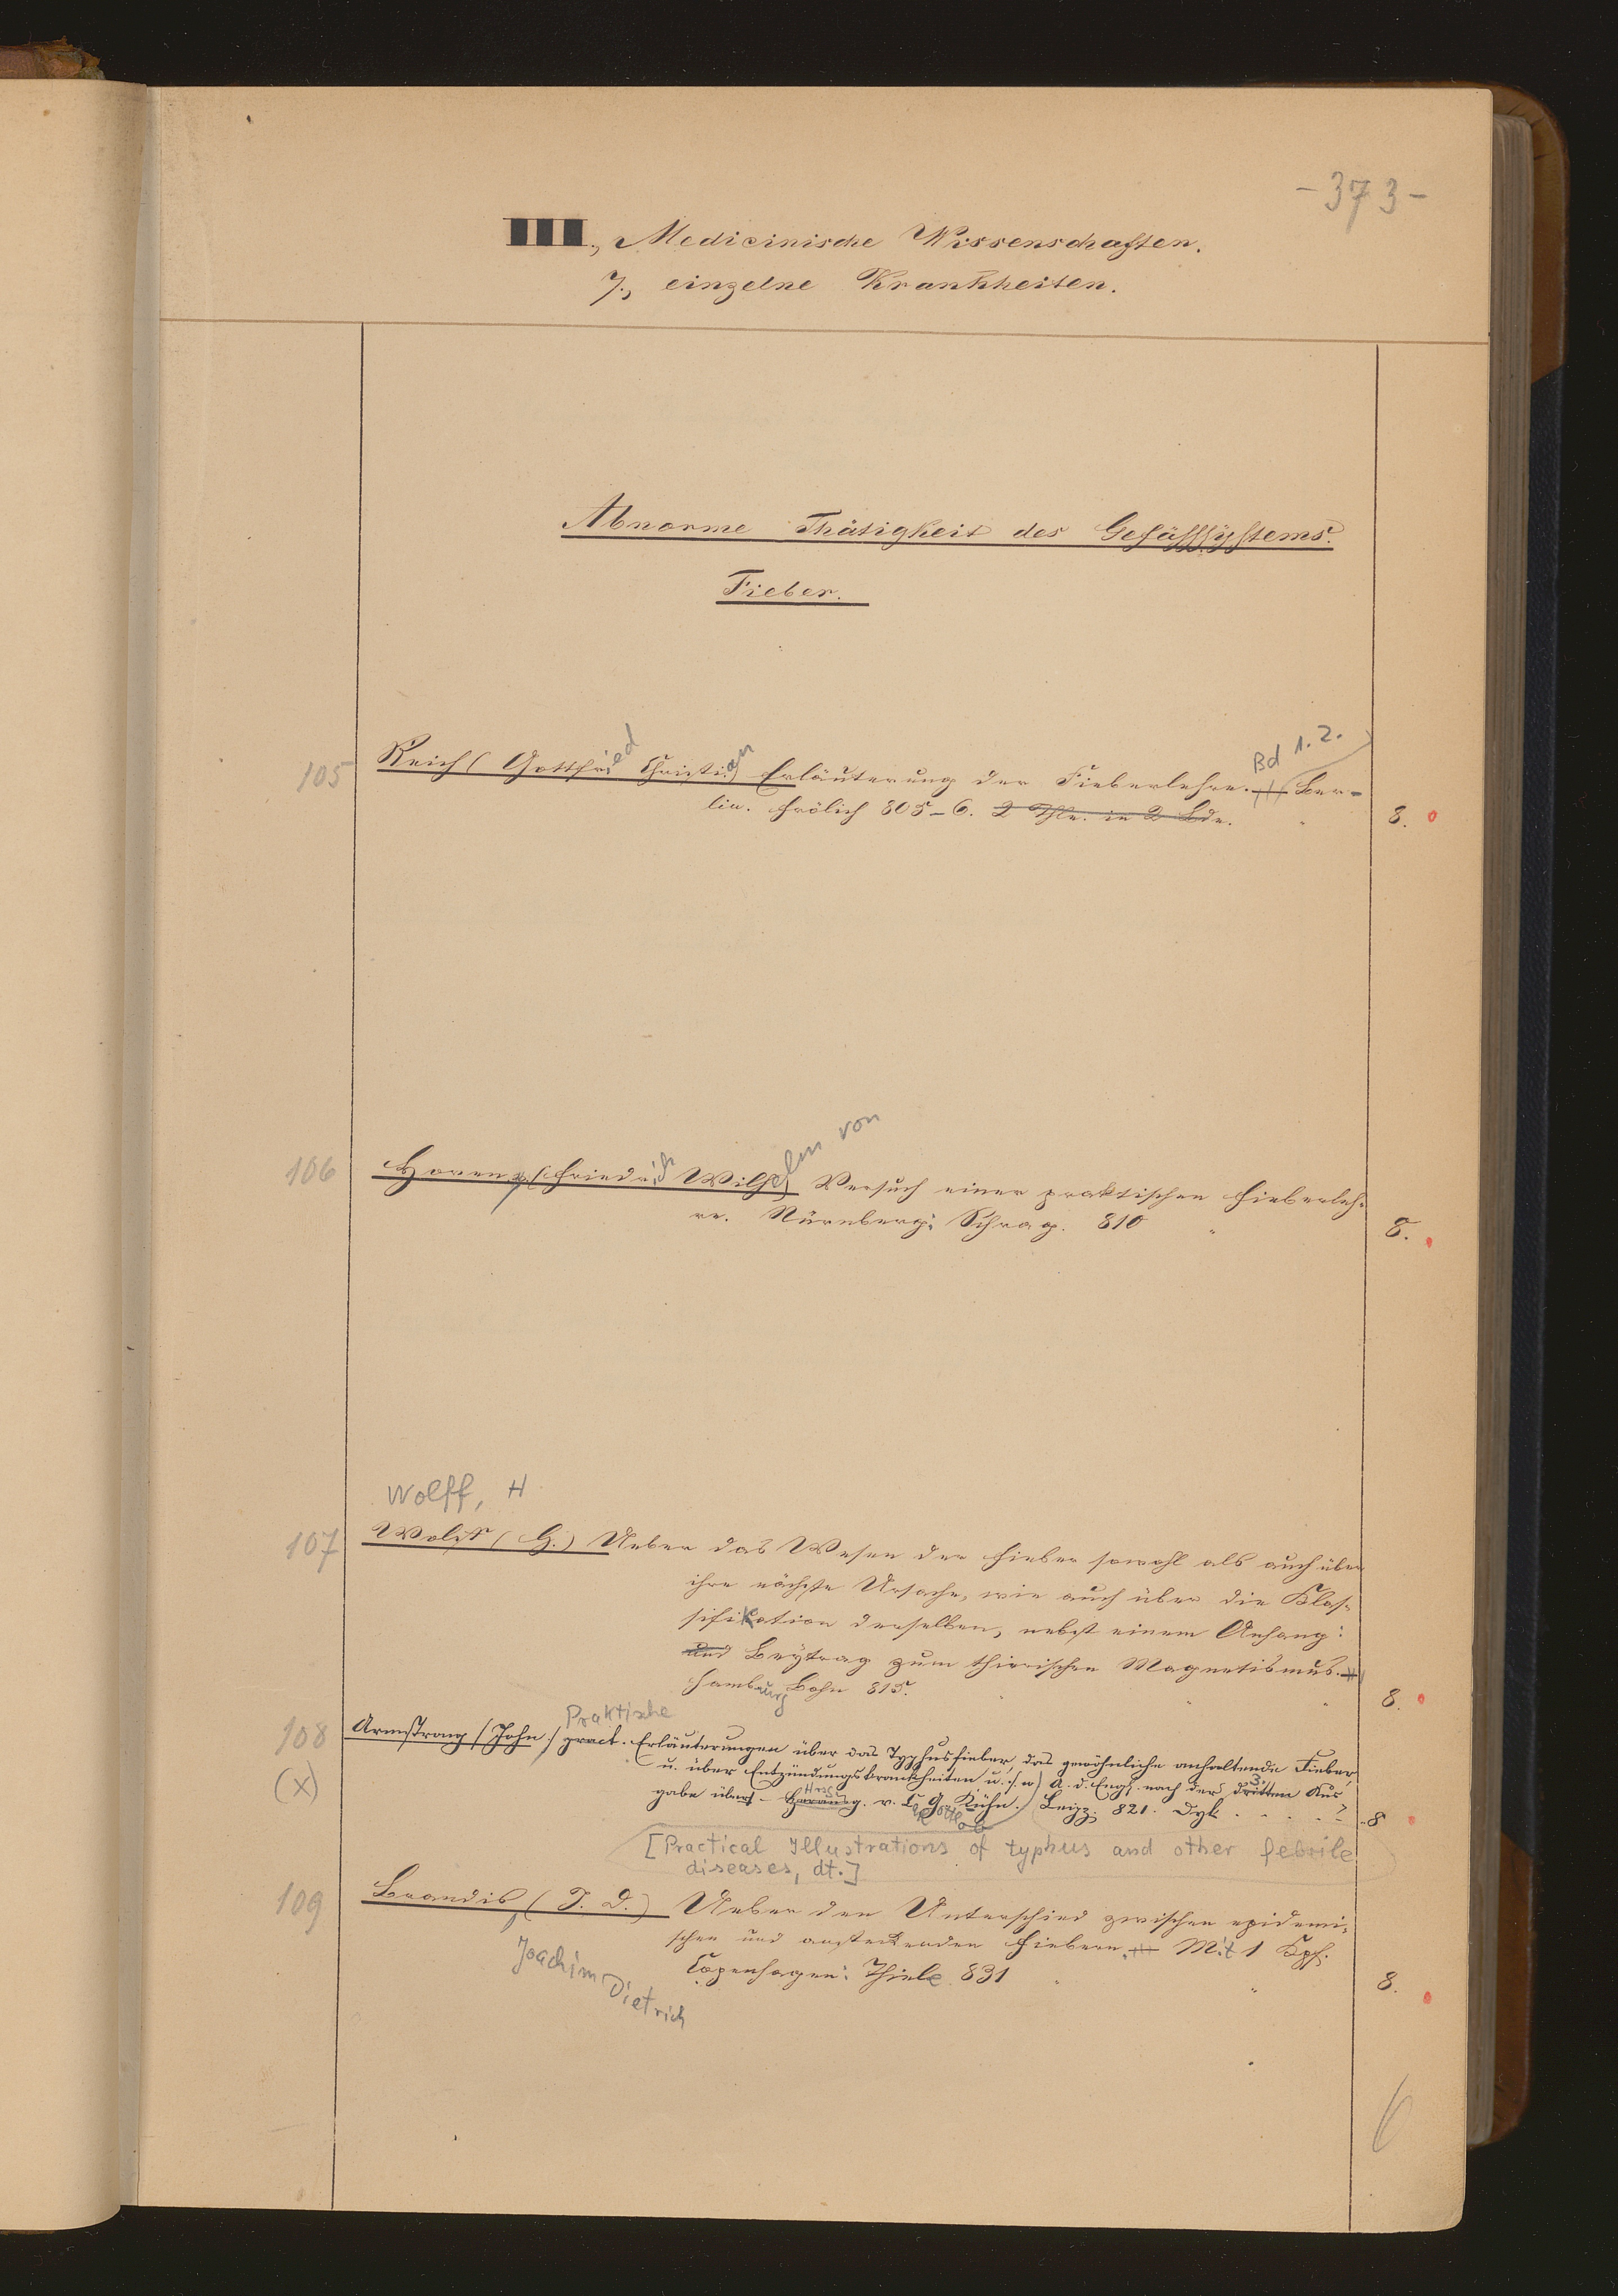 - 373 -
III., Medicinische Wissenschaften.
7., einzelne Krankheiten.
Abnorme Thätigkeit des Gefäſſſyſtems.
Fieber.
Bd 1. 2.
105 Reich (Gottfried Christian) Erläuterung der Fieberlehre. Ber-
lin. Frölich 805-6. 2 Thle. in 2 Bde. 8.
106 Hoven, (Friedrich Wilhelm von) Versuch einer praktischen Fieberleh-
re. Nürnberg: Schrag. 810 8.
Wolff, H
107 Wolff (H.) Ueber das Wesen der Fieber sowohl als auch über
ihre nächste Ursache, wie auch über die Klas-
sifikation derselben, nebst einem Anhang:
und Beytrag zum thierischen Magnetismus.
Hamburg Bohn 815. 8.
Praktische
108 Armstrong (John) pract. Erläuterungen über das Typhusfieber das gewöhnliche anhaltende Fieber
(x) u. über Entzündungskrankheiten u. s. w) A. d. Engl. nach der dritten 3. Aus
gabe übers. - Herausg. Hrsg v. C G. Kühn. Gottlob Leipz. 821. Dyk . . . . ? 8
[Practical Illustrations of typhus and other febrile
diseases, dt.]
109 Brandis, (J. D.) Ueber den Unterschied zwischen epidemi-
schen und ansteckenden Fiebern. Mit 1 Kpf.
Joachim Dietrich
Copenhagen: Thiele 831 8.